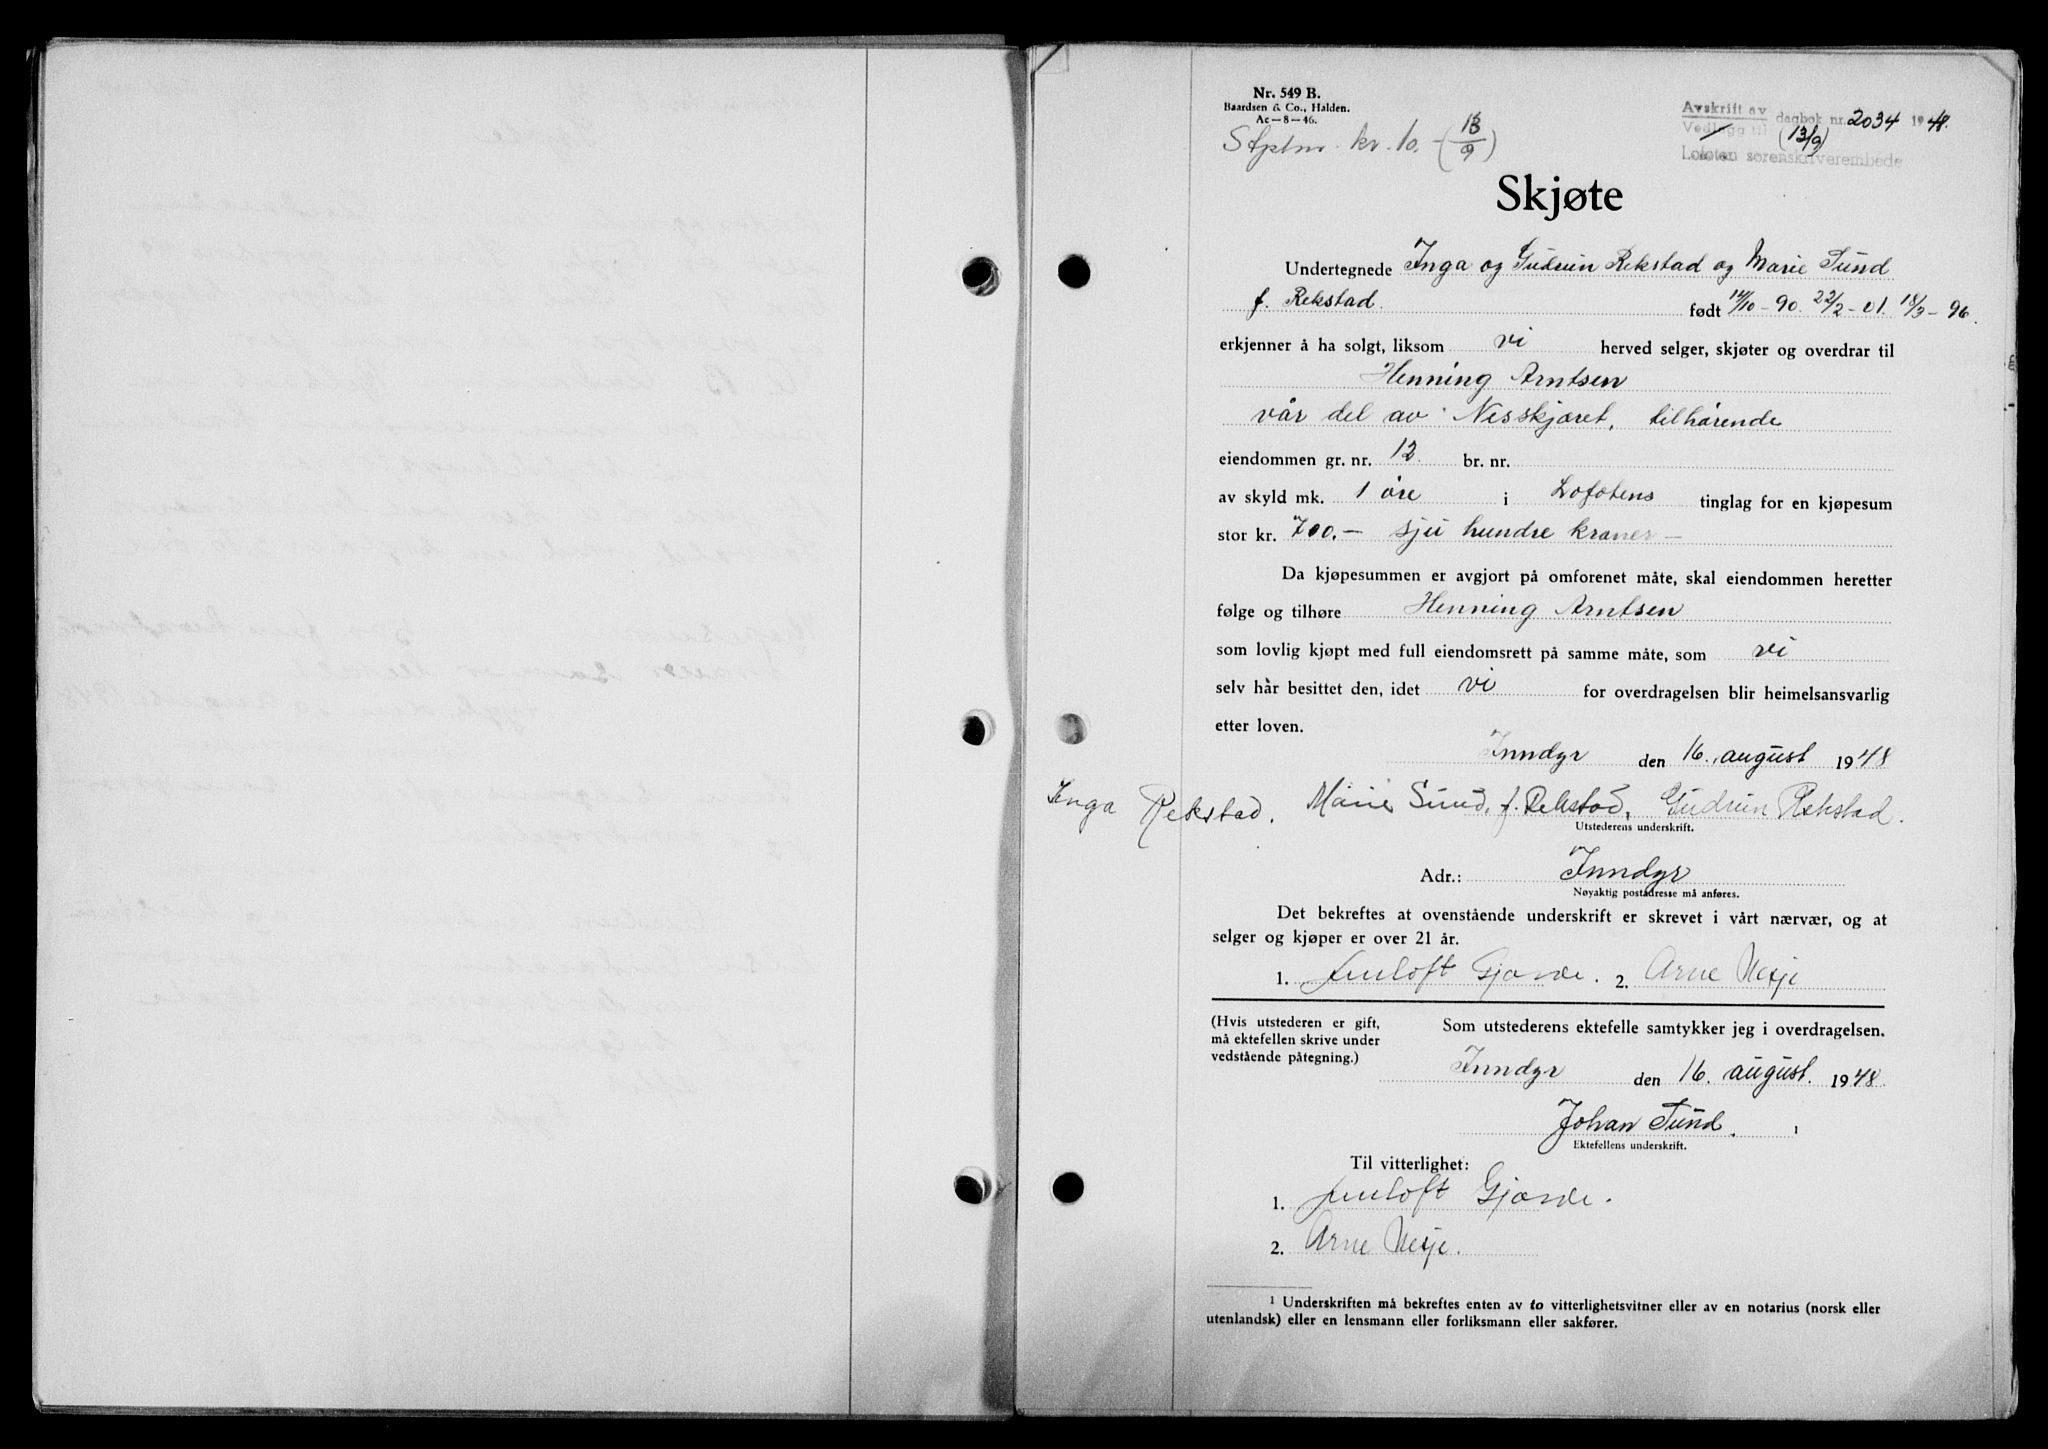 Nr. 549 B.
Baardsen & Co., Halden.
Ac—8—46.
Stptm. kr. 10. (13/9)
Avskrift av
Vedlegg til dagbok nr. 2034 1948.
(13/9)
Lofoten sorenskriverembede
Skjøte
Undertegnede Inga og Gudrun Rekstad og Marie Sund
f. Rekstad. født 14/10-90. 22/2-01. 18/3-96.
erkjenner å ha solgt, liksom vi herved selger, skjøter og overdrar til
Henning Arntsen
vår del av Nesskjæret, tilhørende
eiendommen gr. nr. 12 br. nr.
av skyld mk. 1 øre i Lofotens tinglag for en kjøpesum
stor kr. 700.— sju hundre kroner—
Da kjøpesummen er avgjort på omforenet måte, skal eiendommen heretter
følge og tilhøre Henning Arntsen
som lovlig kjøpt med full eiendomsrett på samme måte, som vi
selv hår besittet den, idet vi for overdragelsen blir heimelsansvarlig
etter loven.
Inndyr den 16. august 1948
Inga Rekstad. Marie Sund, f. Rekstad, Gudrun Rekstad.
Utstederens underskrift.
Adr.: Inndyr
Nøyaktig postadresse må anføres.
Det bekreftes at ovenstående underskrift er skrevet i vårt nærvær, og at
selger og kjøper er over 21 år.
1. Gjærde. 2. Arne Nesje
(Hvis utstederen er gift,
må ektefellen skrive under
vedstående påtegning.)
Som utstederens ektefelle samtykker jeg i overdragelsen.
Inndyr den 16. august. 1948.
Johan Sund. 1
Ektefellens underskrift.
Til vitterlighet:
1. Gjærde.
2. Arne Nesje.
1 Underskriften må bekreftes enten av to vitterlighetsvitner eller av en notarius (norsk eller
utenlandsk) eller en lensmann eller forliksmann eller sakfører.